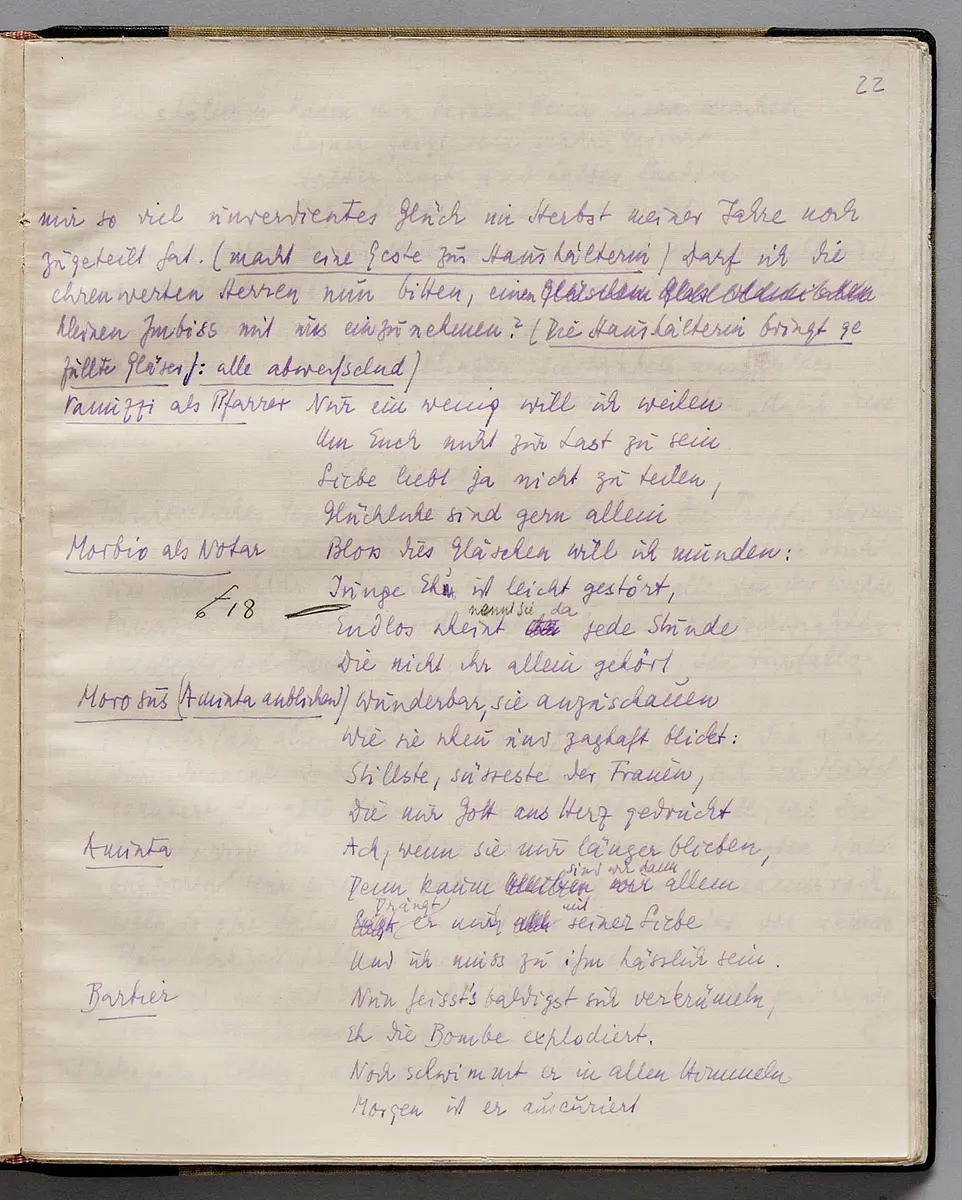 22
mir so viel unverdientes Glück im Herbst meiner Jahre noch
zugeteilt hat. (macht eine Geste zur Haushälterin) Darf ich die
ehrenwerten Herren nun bitten, einen Gläschen
kleinen Imbiss mit uns einzunehmen? (Die Haushälterin bringt ge
füllte Gläser: alle abwechselnd)
Vanuzzi als Pfarrer Nur ein wenig will ich weilen
Um Euch nicht zur Last zu sein
Liebe liebt ja nicht zu teilen,
Glückliche sind gern allein
Morbio als Notar Bloss dies Gläschen will ich munden:
Junge Eh' ist leicht gestört,
nennt sie da
618 Endlos scheint jede Stunde
Die nicht ihr allein gehört
Morosus (Aminta anblickend) Wunderbar, sie anzuschauen
Wie sie scheu und zaghaft blickt:
Stillste, süsseste der Frauen,
Die mir Gott ans Herz gedrückt
Aminta Ach, wenn sie nur länger blieben,
sind wir dann
Denn kaum bleiben wir allein
Drängt mit
er mich seiner Liebe
Und ich muss zu ihm hässlich sein.
Barbier Nun heisst's baldigst sich verkrümeln,
Eh die Bombe explodiert.
Noch schwimmt er in allen Himmeln
Morgen ist er auscuriert